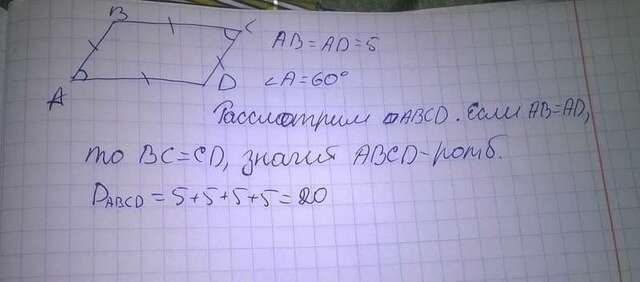 B
C
A
D
AB = AD = 5
∠A = 60°
Рассмотрим ▱ABCD. Если AB=AD,
то BC=CD, значит ABCD-ромб.
PABCD = 5+5+5+5 = 20